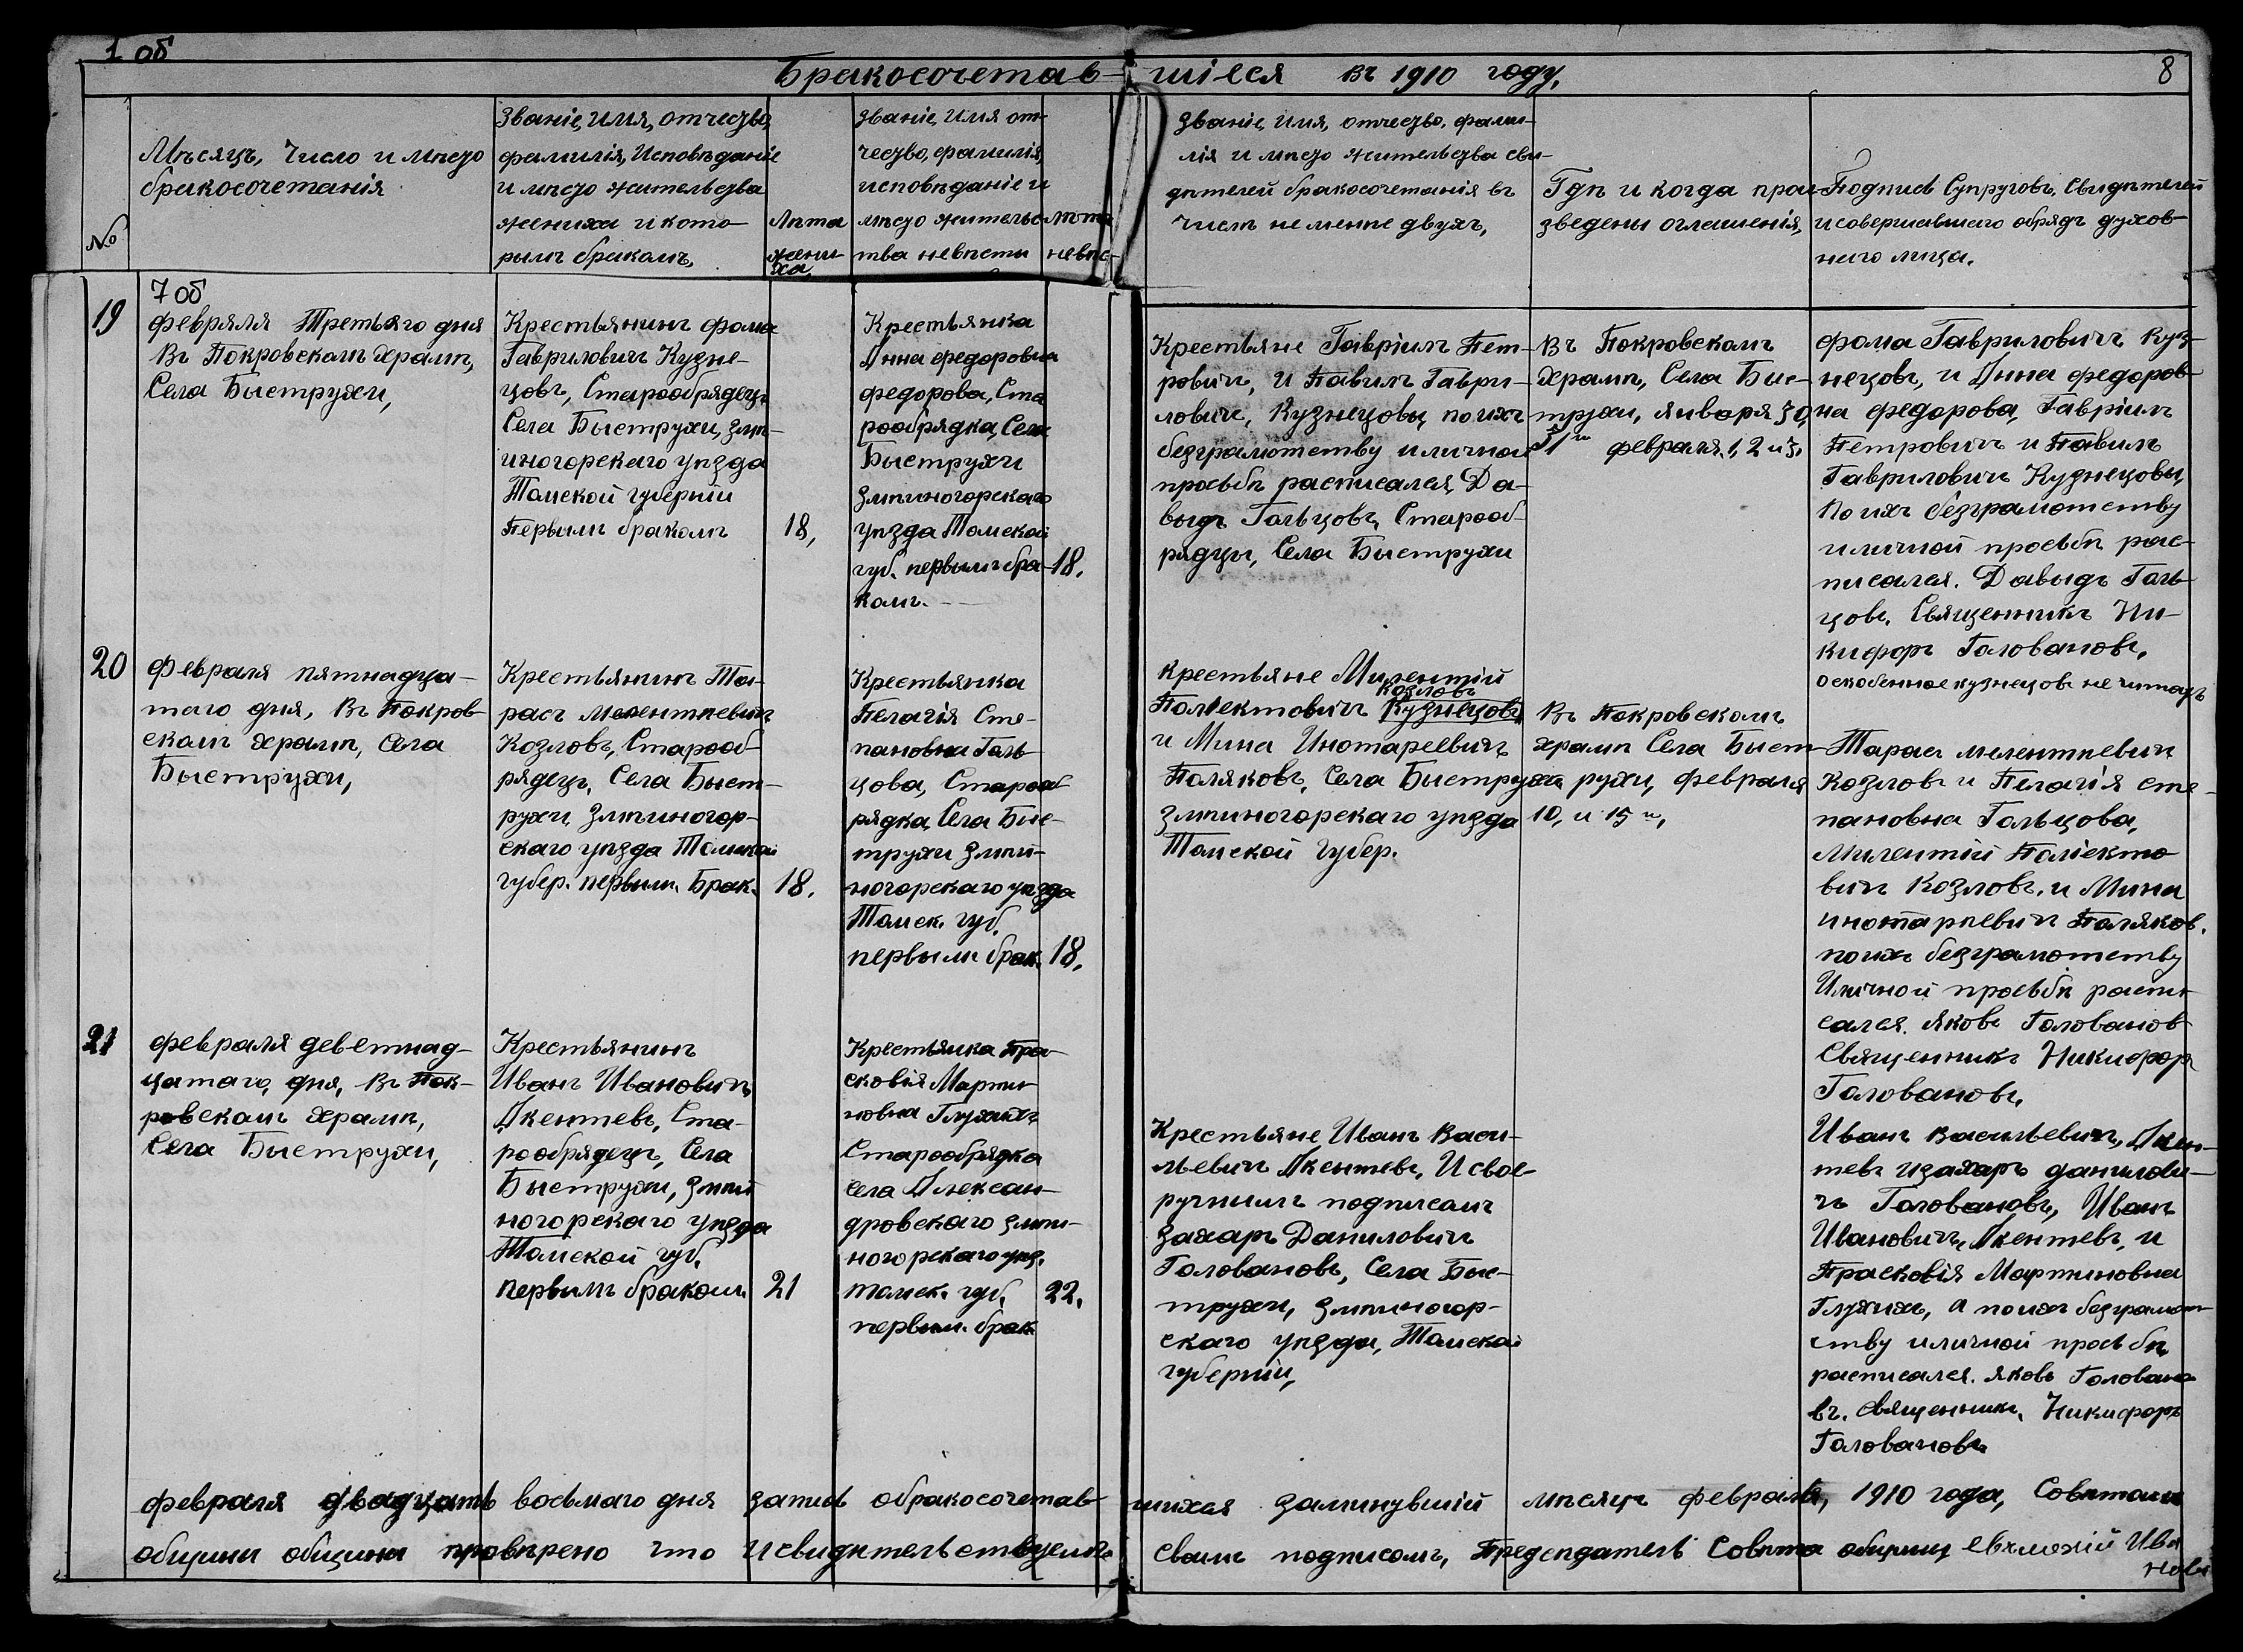 1 об
8
Бракосочетав-шіеся въ 1910 году.
№
Мѣсяцъ, Число и мѣсто
бракосочетанія
Званіе, Имя, отчество,
фамилія, Исповѣданіе
и мѣсто жительства
жениха и кото-
рымъ бракомъ,
Лѣта
жени-
ха,
Званіе, Имя от-
чество, фамилія,
исповѣданіе и
мѣсто жительс-
тва невѣсты
лѣта
невѣс-
Званіе, Имя, отчество, фами-
лія и мѣсто жительства сви-
дѣтелей бракосочетанія въ
числѣ не менѣе двухъ,
Гдѣ и когда прои-
зведены оглашенія,
Подпись Супруговъ, Свидѣтелей
и совершавшаго обрядъ духов-
наго лица.
7 об
19
февряля Третьяго дня
Въ Покровскомъ храмѣ,
Села Быструхи,
Крестьянинъ фома
Гавриловичъ Кузне-
цовъ, Старообрядецъ
Села Быструхи, змѣ-
иногорскаго уѣзда
Томской губерніи
Первымъ бракомъ
18,
Крестьянка
Анна федоровна
федорова, Ста
рообрядка, Села
Быструхи
змѣиногорскаго
уѣзда Томской
губ. первымъ бра-
комъ.
18.
Крестьяне Гавріилъ Пет-
ровичъ, и Павилъ Гаври-
ловичъ, Кузнецовы, по ихъ
безграмотству и личной
просьбѣ расписался, Да-
выдъ Гальцовъ, Старооб-
рядцы, Села Быструхи
Въ Покровскомъ
храмѣ, Села Быс-
трухи, января 30,
31го февраля 1, 2 и 3.
фома Гавриловичъ Куз-
нецовъ, и Анна федоров-
на федорова, Гавріилъ
Петровичъ и Павилъ
Гавриловичъ Кузнецовы,
По ихъ безграмотству
и личной просьбѣ рас-
писался. Давыдъ Галь-
цовъ. Священникъ Ни-
кифоръ Головановъ,
оскобенное кузнецовъ не читать
20
Февраля пятнадца-
таго дня, Въ Покров-
скомъ храмѣ, Села
Быструхи,
Крестьянинъ Та-
расъ Мелентѣевичъ
Козловъ, Старооб-
рядецъ, Села Быст-
рухи змѣиногор-
скаго уѣзда Томской
губер. первым. Брак.
18.
Крестьянка
Пелагія Сте-
пановна Галь-
цова, Старооб
рядка, Села Быс-
трухи змѣи-
ногорскаго уѣзда
Томск. губ.
первым. брак.
18.
крестьяне Милентій
Полїектовичъ Кузнецовъ
Козловъ
и Мина Инотарсевичъ
Поляковъ, Села Быструхи
змѣиногорскаго уѣзда
Томской губер.
Въ Покровскомъ
храмѣ Села Быст-
рухи, февраля
10, и 15го,
Тарасъ милентѣевичъ
Козловъ и Пелагія сте-
пановна Гальцова,
Милентій Поліекто
вичъ Козловъ, и Мина
инотарѣевичъ Поляков.
по ихъ безграмотству
И личной просьбѣ распи-
сался. Яковъ Головановъ
Священникъ Никифоръ
Головановъ,
21
февраля деветнад-
цатаго, дня, Въ Пок-
ровскомъ храмѣ,
Села Быструхи,
Крестьянинъ
Иванъ Ивановичъ
Акентевъ, Ста-
рообрядецъ, Села
Быструхи, змѣи
ногорскаго уѣзда
Томской губ.
первымъ браком.
21
Крестьянка Пра-
сковія Марти-
новна Глухихъ
Старообрядка
села Алексан-
дровскаго змѣи-
ногорскаго уѣз.
томск. губ.
первым. брак
22.
Крестьяне, Иванъ Васи-
льевичъ Акентевъ, И свое-
ручнымъ подписомъ
захаръ Даниловичъ
Головановъ, Села Быс-
трухи, змѣиногор-
скаго уѣзда, Томской
губерніи,
Иванъ васильевичъ, Акен-
тевъ и захаръ данилови-
чъ Головановъ, Иванъ
Ивановичъ, Акентевъ, и
Прасковія Мартиновна
Глухихъ, а по ихъ безграмот-
ству и личной просьбѣ
расписался. яковъ Голована-
въ. Священникъ Никифоръ
Головановъ
февраля двадцать восьмаго дня запись обракосочетав-шихся заминувшій мѣсяцъ февраля, 1910 года, Совѣтомъ
общины общины провѣрено что и свидѣтельствуемъ своимъ подписомъ, Предсѣдатель Совѣта общины Ива
новъ